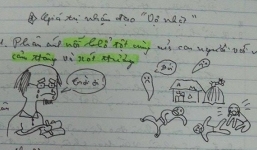 giá trị nhân đạo "Vợ nhặt"
1. Phản ánh nỗi khổ tột cùng của con người với
cảm thông và xót thương
đói